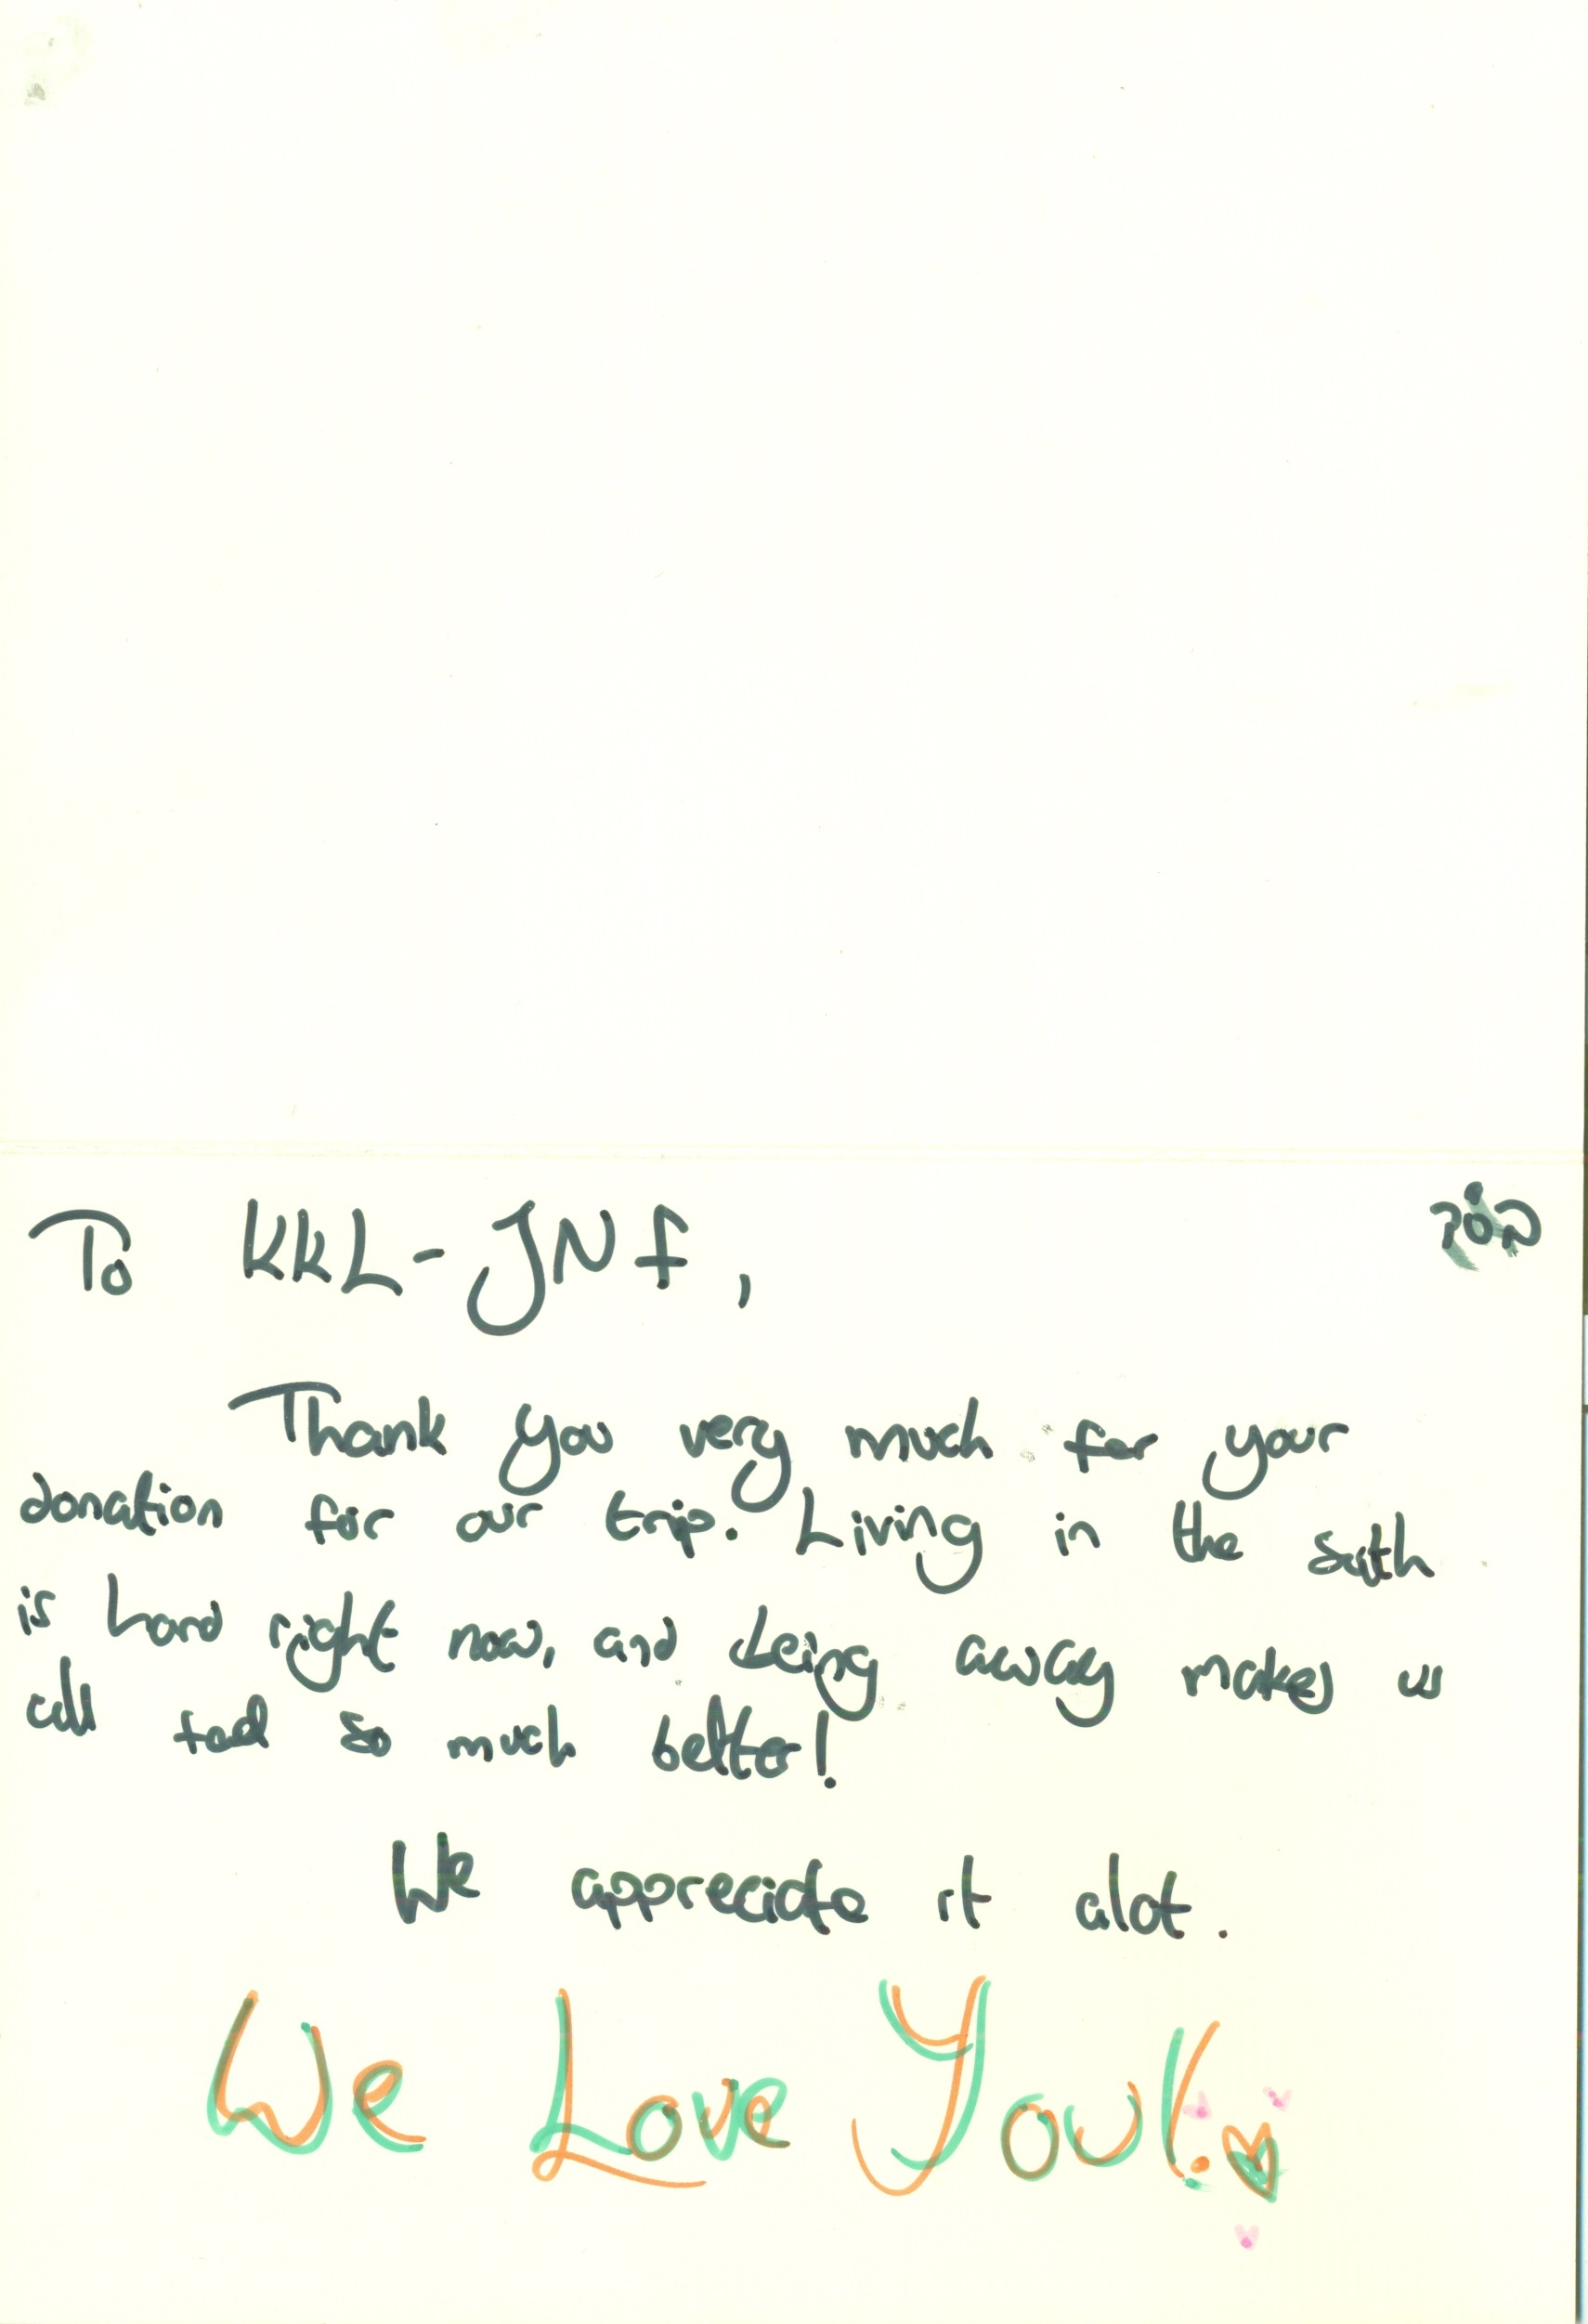 בס"ד
To KKL-JNF,
Thank you very much for your
donation for our trip. Living in the south
is hard right now, and being away makes us
all feel so much better!
We apprecicte it alot.
We Love You!